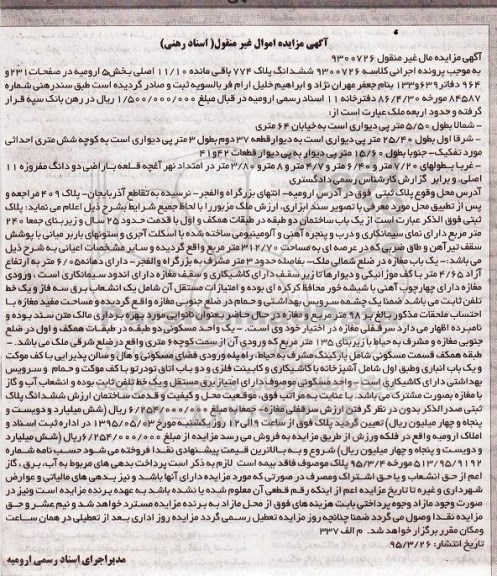 آگهی مزایده اموال غیر منقول( اسناد رهنی)
آگهی مزایده مال غیر منقول ۹۳۰۰۷۲۶
به موجب پرونده اجرائی کلاسه ۹۳۰۰۷۲۶ ششدانگ پلاک ۷۷۴ باقی مانده ۱۱/۱۰ اصلی بخش۵ ارومیه در صفحات ۲۳۱و
۹۶۴ دفاتر۶۳۹و۱۳۳ بنام جعفر مهران نژاد و ابراهیم خلیل ارام فر بالسویه ثبت و صادر گردیده است طبق سندرهنی شماره
۸۴۵۸۷ مورخه ۸۶/۴/۳۰ دفترخانه ۱۱ اسناد رسمی ارومیه در قبال مبلغ ۱/۵۰۰/۰۰۰/۰۰۰ ریال در رهن بانک سپه قرار
گرفته و حدود اربعه ملک عبارت است از:
- شمالا بطول ۵/۵۰ متر پی دیواری است به خیابان ۶۴ متری
- شرقا اول بطول ۲۵/۴۰ متر پی دیواری است به دیوار قطعه ۳۷ دوم بطول ۳ متر پی دیواری است به کوچه شش متری احداثی
مورد تفکیک- جنوبا بطول ۱۵/۶۰ متر پی دیوار به پی دیوار قطعات ۴۲و۴۱
- غربا بطولهای ۷/۲۰ متر و ۶/۴۰ متر و ۴/۷ متر و ۸ متر و ۳/۸۰ متر در امتداد نهر آغچه قلعه باراضی دو دانگ مفروزه ۱۱
اصلی. و برابر گزارش کارشناس رسمی دادگستری
آدرس محل وقوع پلاک ثبتی فوق در آدرس ارومیه- انتهای بزرگراه والفجر- نرسیده به تقاطع آذربایجان- پلاک ۴۰۹ مراجعه و
پس از تطبیق محل مورد معرفی با تصویر سند ابرازی، ارزش ملک مزبور را با لحاظ جمیع شرایط بشرح ذیل اعلام می نماید: پلاک
ثبتی فوق الذکر عبارت است از یک باب ساختمان دو طبقه در طبقات همکف و اول با قدمت حدود ۲۵ سال و زیربنای جمعا ۲۴۰
متر مربع دارای نمای سیمانکاری و درب و پنجره آهنی و آلومینیومی ساخته شده با اسکلت آجری و ستونهای باربر میانی با پوشش
سقف تیرآهن و طاق ضربی که در عرصه ای به مساحت ۳۱۲/۷۰ متر مربع واقع گردیده و سایر مشخصات اعیانی به شرح ذیل
می باشد:- یک باب مغازه در ضلع شمالی ملک- بفاصله حدود ۳ متر مشرف به بزرگراه والفجر- دارای دهانه ۶/۰۵ متر به ارتفاع
آزاد ۴/۶۵ متر با کف موزائیکی و دیوارها تا زیر سقف دارای کاشیکاری و سقف مغازه دارای اندود سیمانکاری است ، ورودی
مغازه دارای چهارچوب آهنی با شیشه خور محافظ کرکره ای بوده و امتیازات مستقل آن شامل یک انشعاب برق سه فاز و یک خط
تلفن ثابت می باشد ضمنا یک چشمه سرویس بهداشتی و حمام در ضلع جنوبی مغازه واقع گردیده و مساحت مفید مغازه با
احتساب ملحقات مذکور بالغ بر ۹۸ متر مربع و مغازه در حال حاضر بعنوان نانوایی مورد بهره برداری مالک متن سند بوده و
نامبرده اظهار می دارد سرقفلی مغازه در اختیار خود وی است. - یک واحد مسکونی دو طبقه در طبقات همکف و اول در ضلع
جنوبی مغازه و مشرف به حیاط با زیربنای ۱۳۵ متر مربع که ورودی آن از سمت کوچه ۶ متری واقع در ضلع شرقی ملک می باشد. -
طبقه همکف قسمت مسکونی شامل پارکینگ مشرف به حیاط، راه پله ورودی فضای مسکونی و هال و سالن پذیرایی با کف موکت
و یک باب انباری وطبق اول شامل آشپزخانه با کاشیکاری و کابینت فلزی و دو باب اتاق تودرتو با کف موکت و حمام و سرویس
بهداشتی دارای کاشیکاری است - واحد مسکونی موصوف دارای امتیاز برق مستقل و یک خط تلفن ثابت بوده و انشعاب آب و گاز
با مغازه بصورت مشترک می باشد. با عنایت به مراتب فوق، موقعیت محل و کیفیت و قدمت ساختمان ارزش ششدانگ پلاک
ثبتی صدر الذکر بدون در نظر گرفتن ارزش سرقفلی مغازه - جمعا به مبلغ ۶/۲۵۴/۰۰۰/۰۰۰ ریال (شش میلیارد و دویست و
پنجاه و چهار میلیون ریال) تعیین گردید پلاک فوق از ساعت ۹ الی ۱۲ روز یکشنبه مورخ ۱۳۹۵/۰۵/۰۳ در اداره ثبت اسناد و
املاک ارومیه واقع در فلکه ورزش از طریق مزایده به فروش می رسد مزایده از مبلغ ۶/۲۵۴/۰۰۰/۰۰۰ریال (شش میلیارد
و دویست و پنجاه و چهار میلیون ریال) شروع و به بالاترین قیمت پیشنهادی نقدا فروخته می شود حسب نامه شماره
۵۱۳/۹۵/۹۱۹۲ مورخه ۹۵/۳/۴ پلاک موصوف فاقد بیمه است لازم به ذکر است پرداخت بدهی های مربوط به آب، برق، گاز
اعم از حق انشعاب و یا حق اشتراک ومصرف در صورتی که مورد مزایده دارای آنها باشد و نیز بدهی های مالیاتی و عوارض
شهرداری و غیره تا تاریخ مزایده اعم از اینکه رقم قطعی آن معلوم شده یا نشده باشد به عهده برنده مزایده است ونیز در
صورت وجود مازاد وجوه پرداختی بابت هزینه های فوق از محل مازاد به برنده مزایده مسترد خواهد شد و نیم عشر و حق
مزایده نقدا وصول می گردد ضمنا چنانچه روز مزایده تعطیل رسمی گردد مزایده روز اداری بعد از تعطیلی در همان ساعت
ومکان مقرر برگزار خواهد شد. م الف ۳۳۷
تاریخ انتشار: ۹۵/۳/۲۶
مدیراجرای اسناد رسمی ارومیه